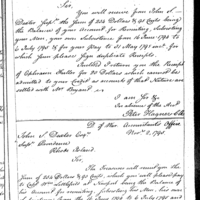 Sir
You will receive from John S.
Dexter Esqr. the sum of 224 Dollars & 90 Cents being
the Balance of your Account for Recruiting, Subsisting
your Men, your own Subsistence from 16 June 1790 to
4 July 1791 & for your Pay to 31 May 1791 and for
which you will please sign duplicate Receipts
Inclosed I return you the Receipt
of Ephraim for 20 Dollars which cannot be
admitted to your Credit as accounts of that Nature are
settled with Mr.
I am Sir &c
In absence of the Acct
Peter Hagner Clk
D of War Accountants Office
Nov. 2, 1791
John S. Dexter Esqr.
Supr.
Rhode Island
Sir
The Treasurer will remit you the
Sum of 224 dollars & 90 Cents which you will please pay
to Capt. Wm. Littlefield at Newport being the balance of
his Account for recruiting, Subsisting his Men, his own
Subsistence from 16 June 1790 to 4 July 1791 and